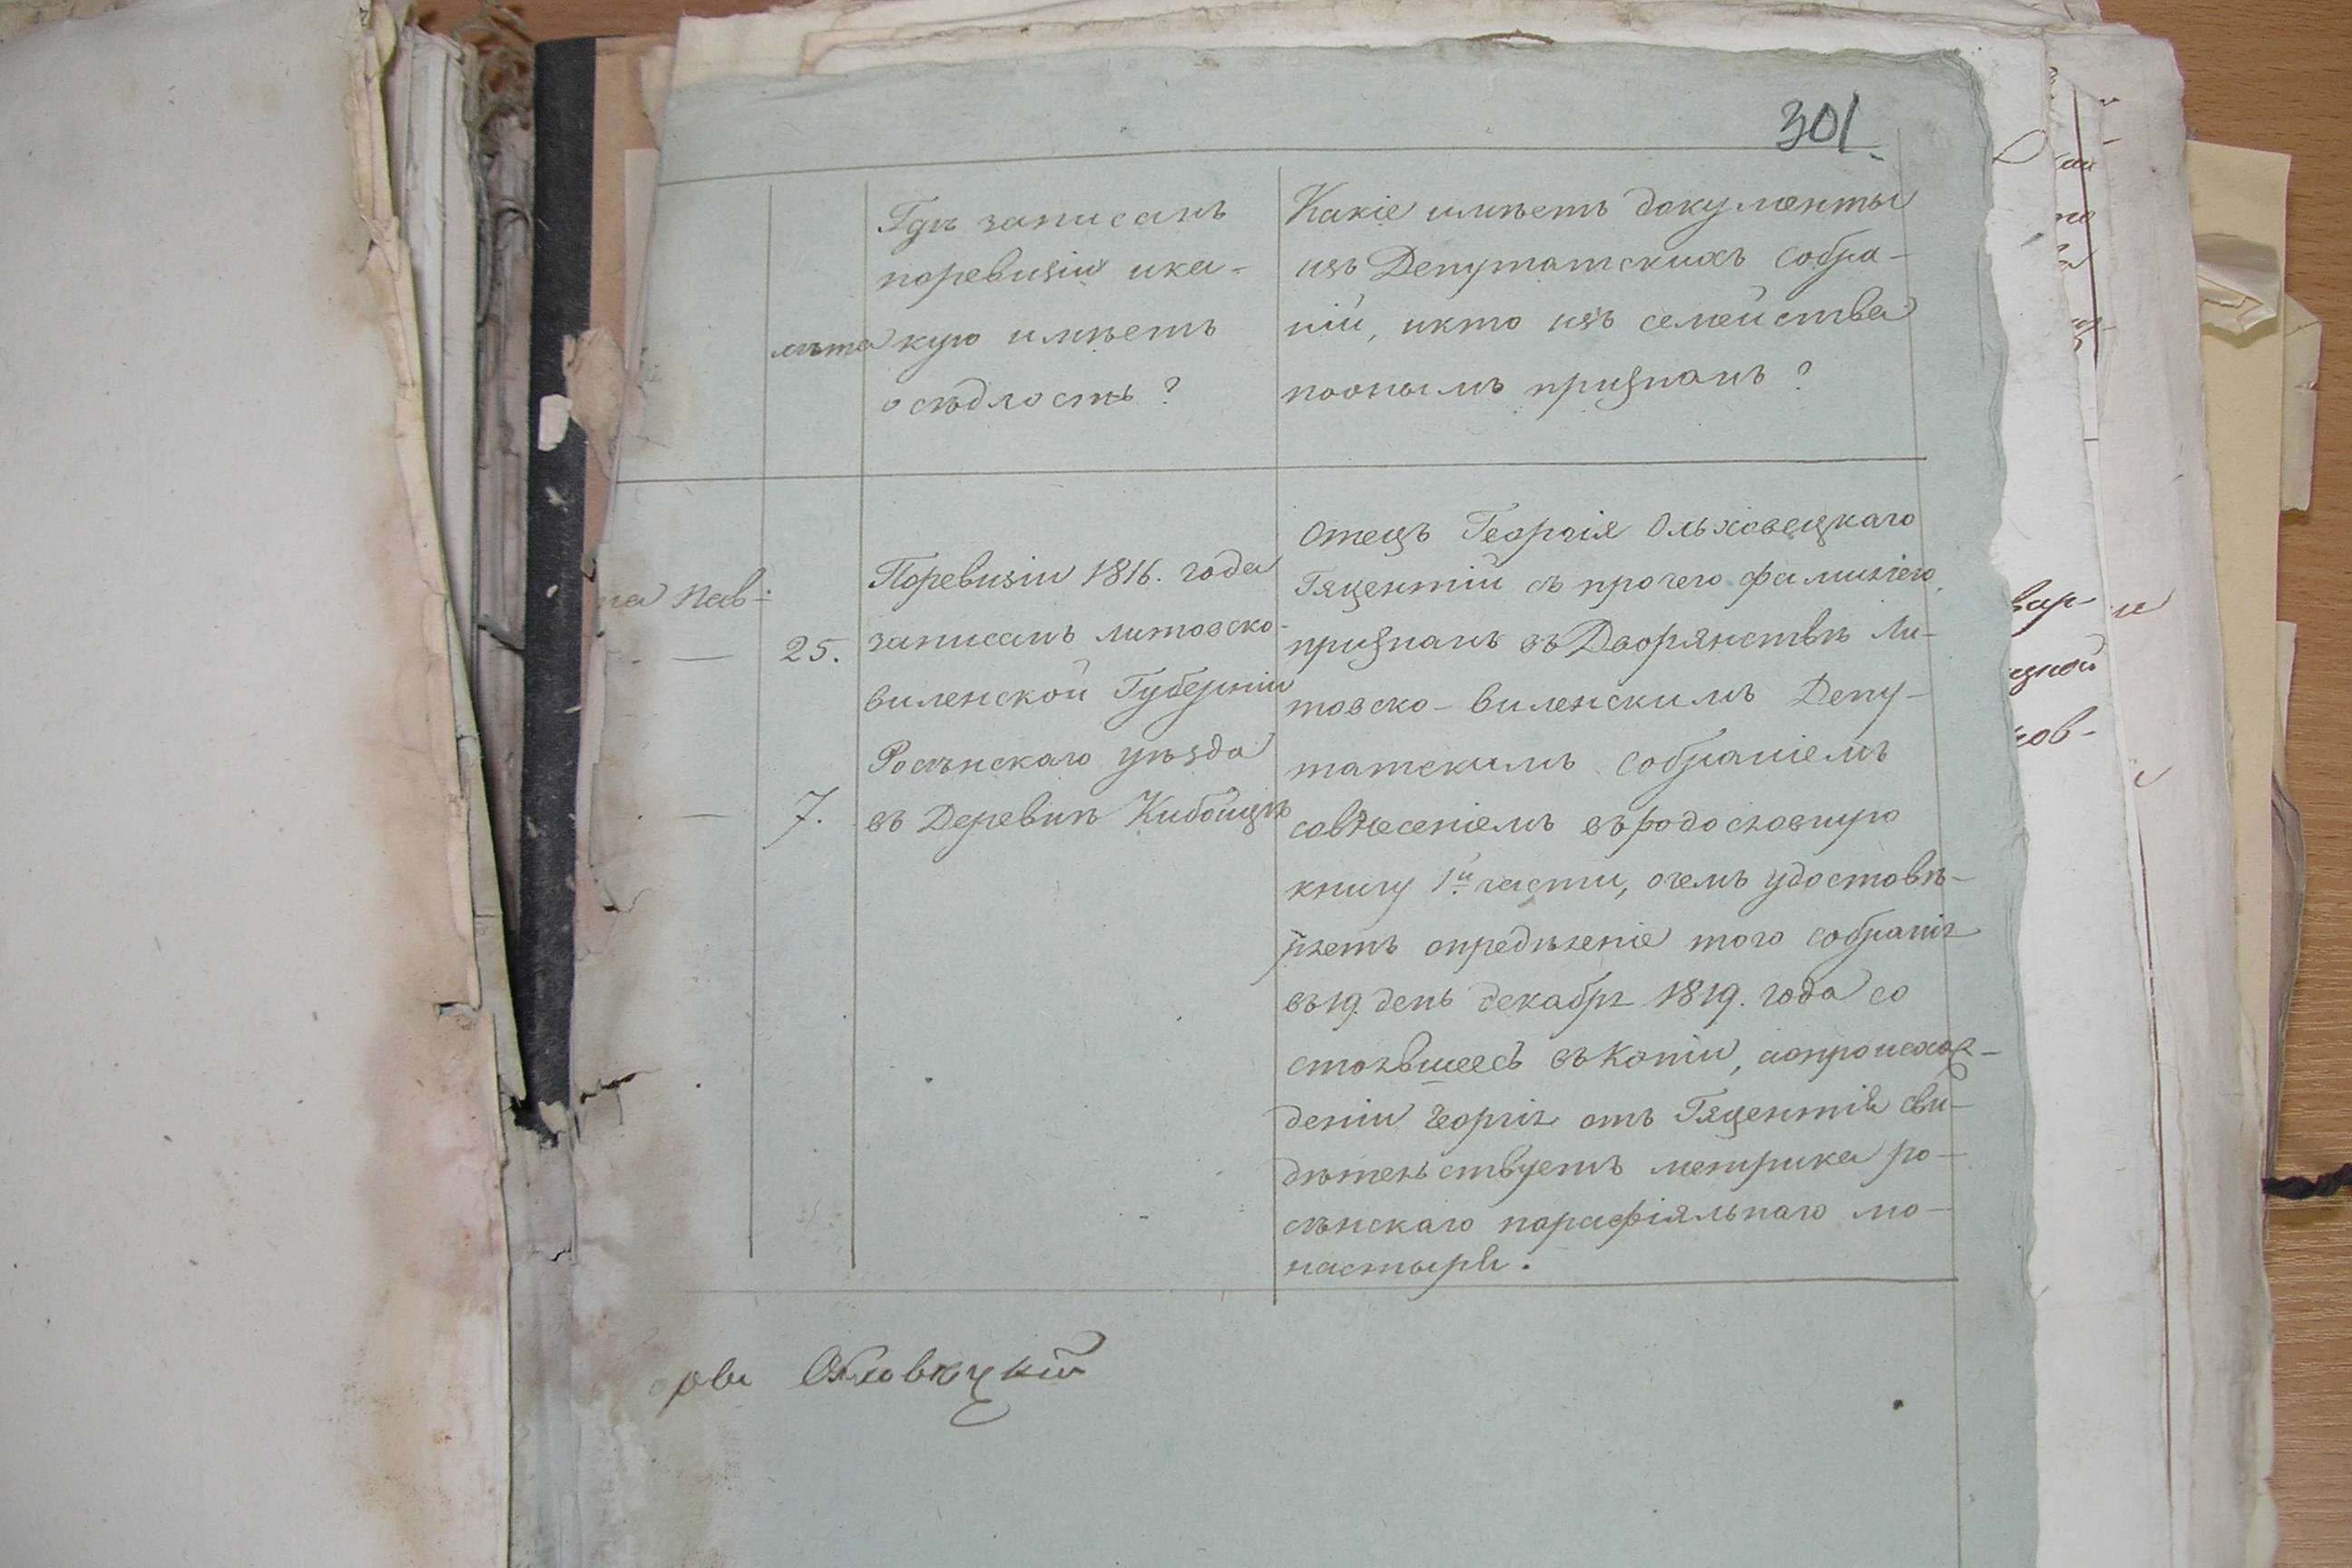 301
лѣта
Гдѣ записанъ
поревизіи ика-
кую имѣетъ
осѣдлость?
Какіе имѣетъ документы
изъ Депутатскихъ собра-
ній, икто изъ семейства
поонымъ признанъ?
25.
7.
Поревизіи 1816. года
записанъ литовско-
виленской Губерніи
Росіенскаго уѣзда
въ Деревнѣ
Отецъ Георгія Ольховецкаго
Гяцентій съ прочею фамиліею
признанъ въ Дворянствѣ Ли-
товско-виленскимъ Депу-
татскимъ собраніемъ
совнесеніемъ въродословную
книгу 1й части, очемъ удостовѣ-
ряетъ опредѣленіе того собранія
въ 19. день декабря 1819. года со
стоявшееся въ Копіи, аопроисхож-
деніи Георгія отъ Гяцентія сви-
дѣтельствуетъ метрика ро-
сіенскаго парафіяльнаго мо-
настыря.